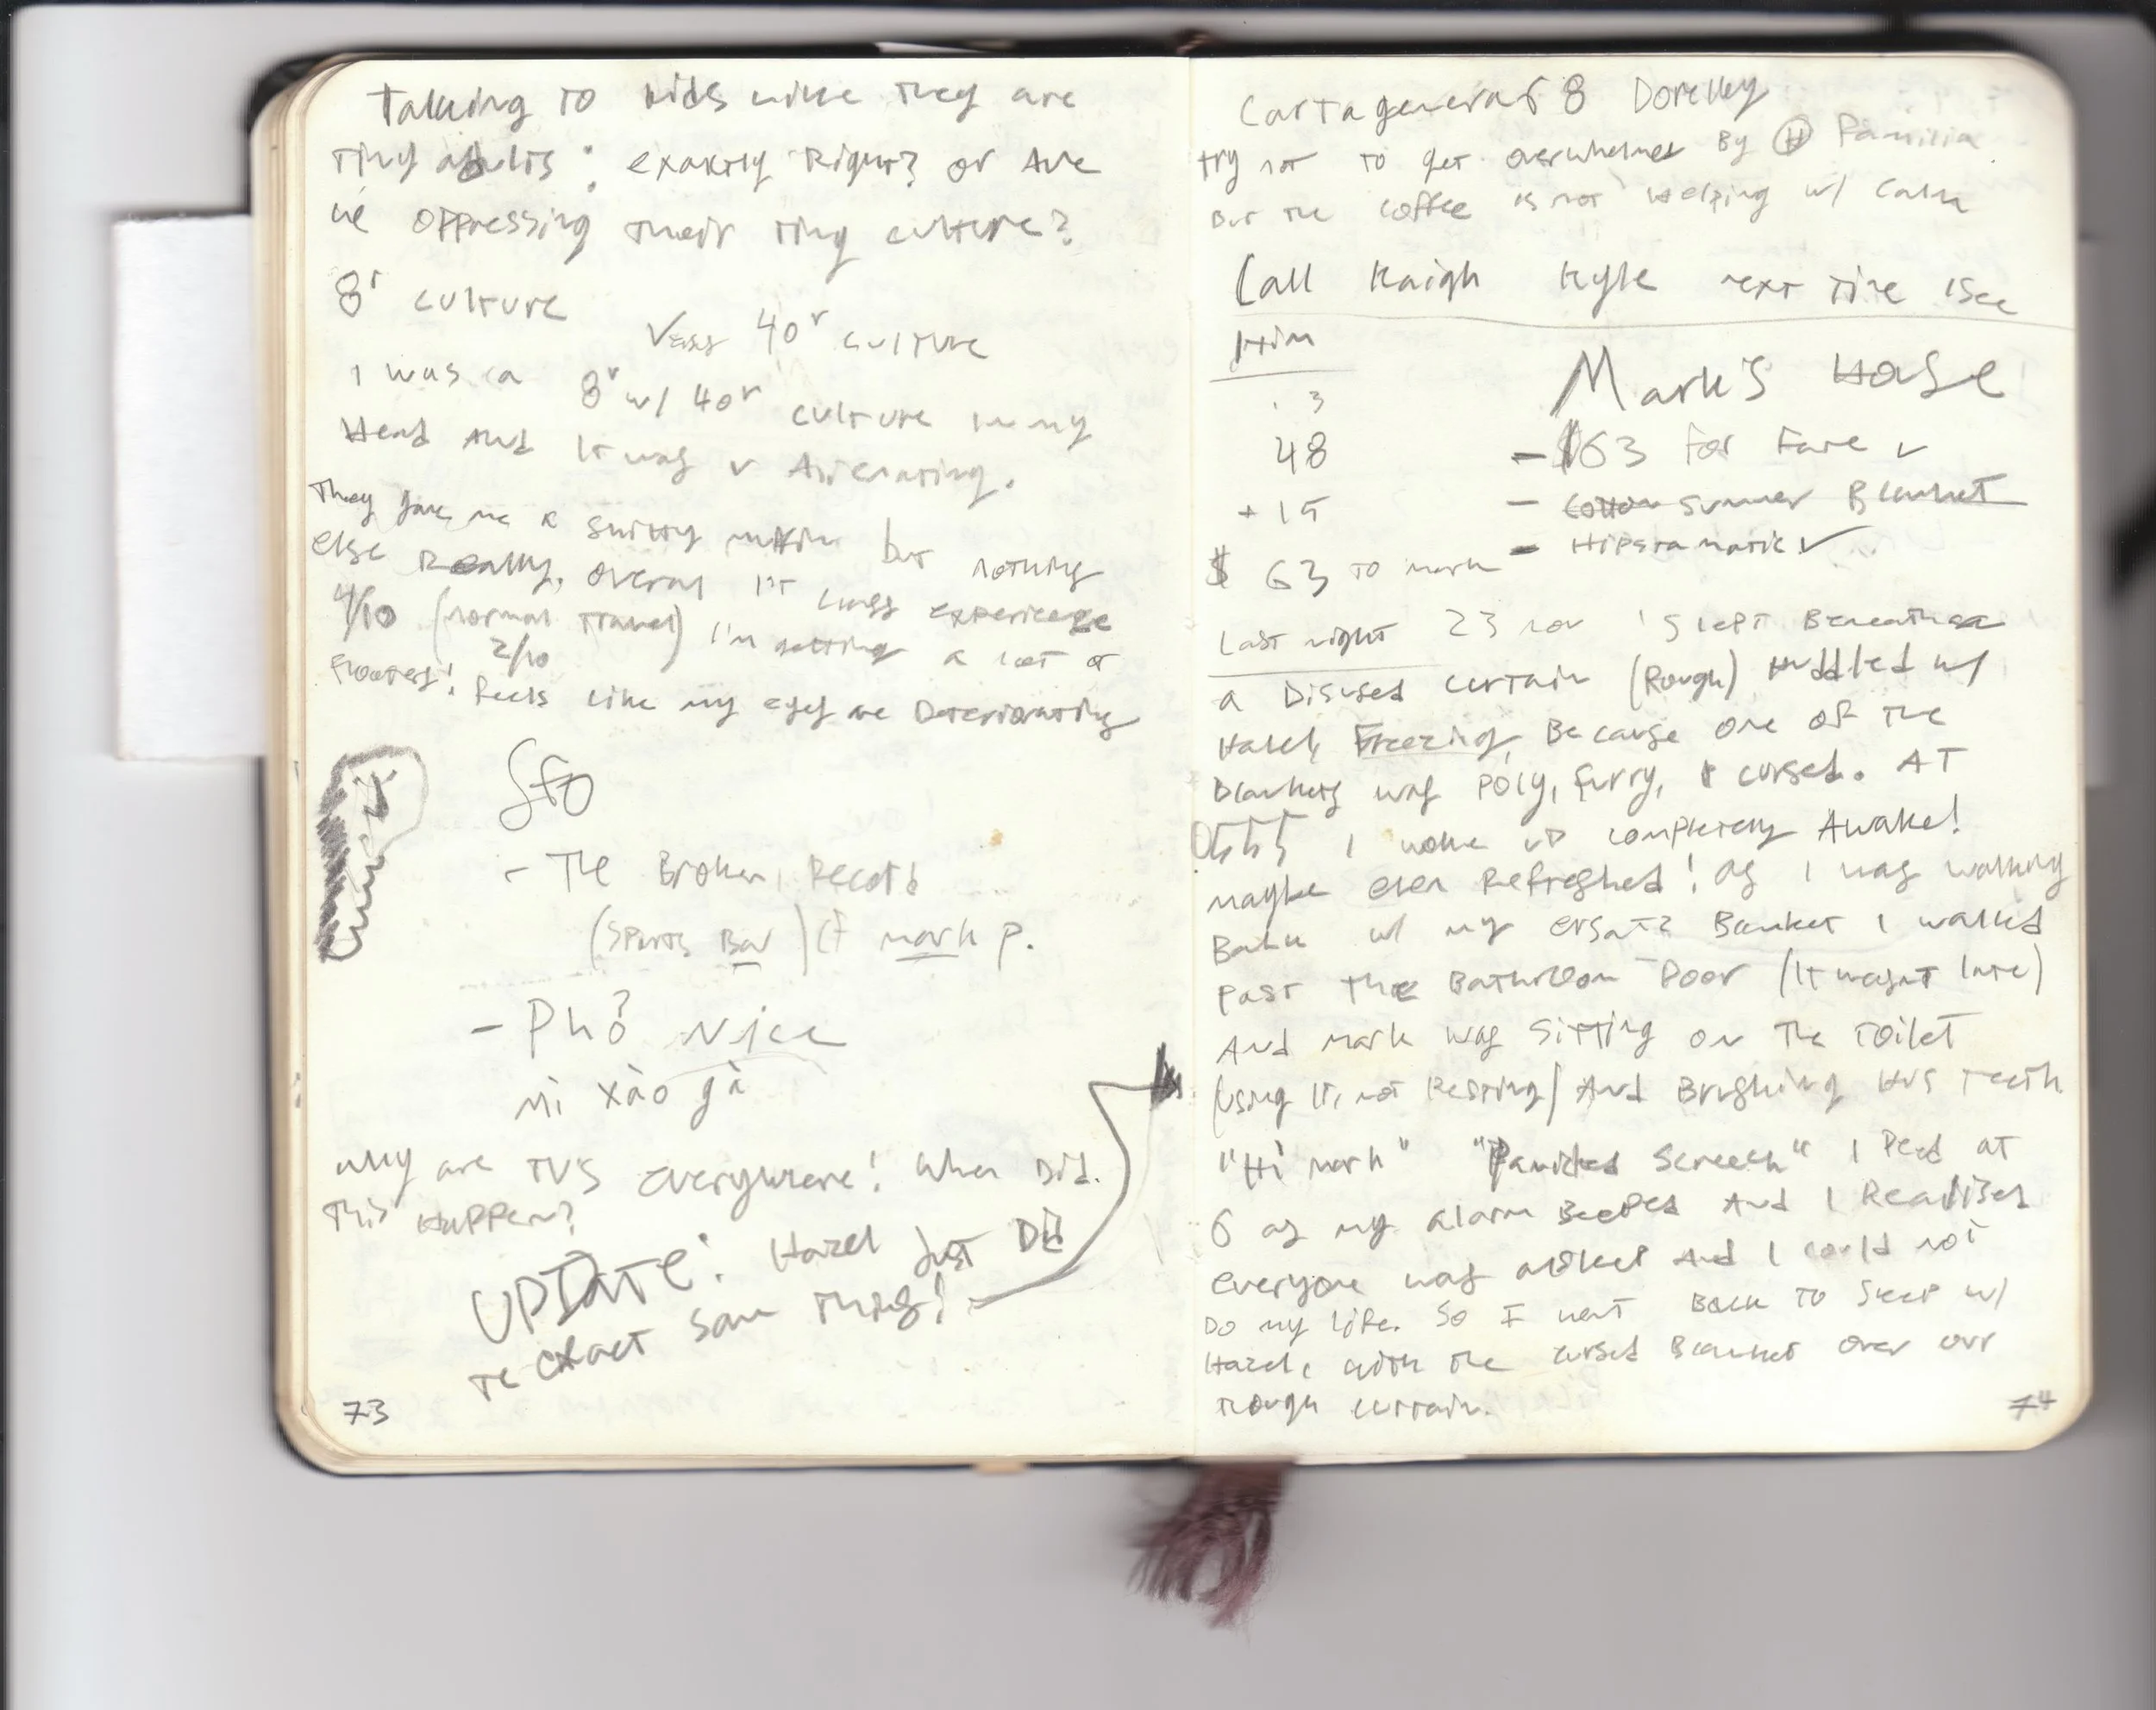 Talking to kids like they are
tiny adults: exaktly Right? or Are
we oppressing their tiny culture?
8r culture
Vess 40r culture
I was a 8r w/ 40r culture in my
Head And It was v Alienating.
They gave me a shitty muffin but nothing
else Really. overall 1st class experience
4/10 (normal travel) I'm getting a lot of
2/10
Floaters! Feels like my eyes are Deteriorating
Sfo
- The Broken Record
(Sports Bar) cf mark p.
- Phở Nice
mì xào gà
why are TVs everywhere! When Did
This Happen?
UPDATE: Hazel Just Did
The exact same Thing!
73
Cartagenera 68 Dorelley
try not to get overwhelmed By Ⓗ Familia
But the coffee is not Helping w/ Calm
Call Kaigh Kyle next Time I See
Him
3
48
+ 15
$ 63 to mark
Mark's House
- $63 for Fare ✓
- Cotton Summer Blanket
- Hipstamatic ✓
Last night 23 nov I slept Beneath
a Disused curtain (Rough) Huddled w/
Hazel, Freezing, Because one of the
Blankets was Poly, furry, & cursed. AT
0555 I woke up completely Awake!
maybe even Refreshed! as I was walking
Back w/ my ersatz Blanket I walked
past the Bathroom Door (It wasn't late)
And mark was Sitting on The Toilet
(using It, not Resting) And Brushing His Teeth
"Hi mark" "Panicked Screech" I Peed at
6 as my alarm Beeped And I Realised
everyone was asleep And I could not
Do my Life. So I went Back To Sleep w/
Hazel, with the cursed Blanket over our
rough curtain.
74